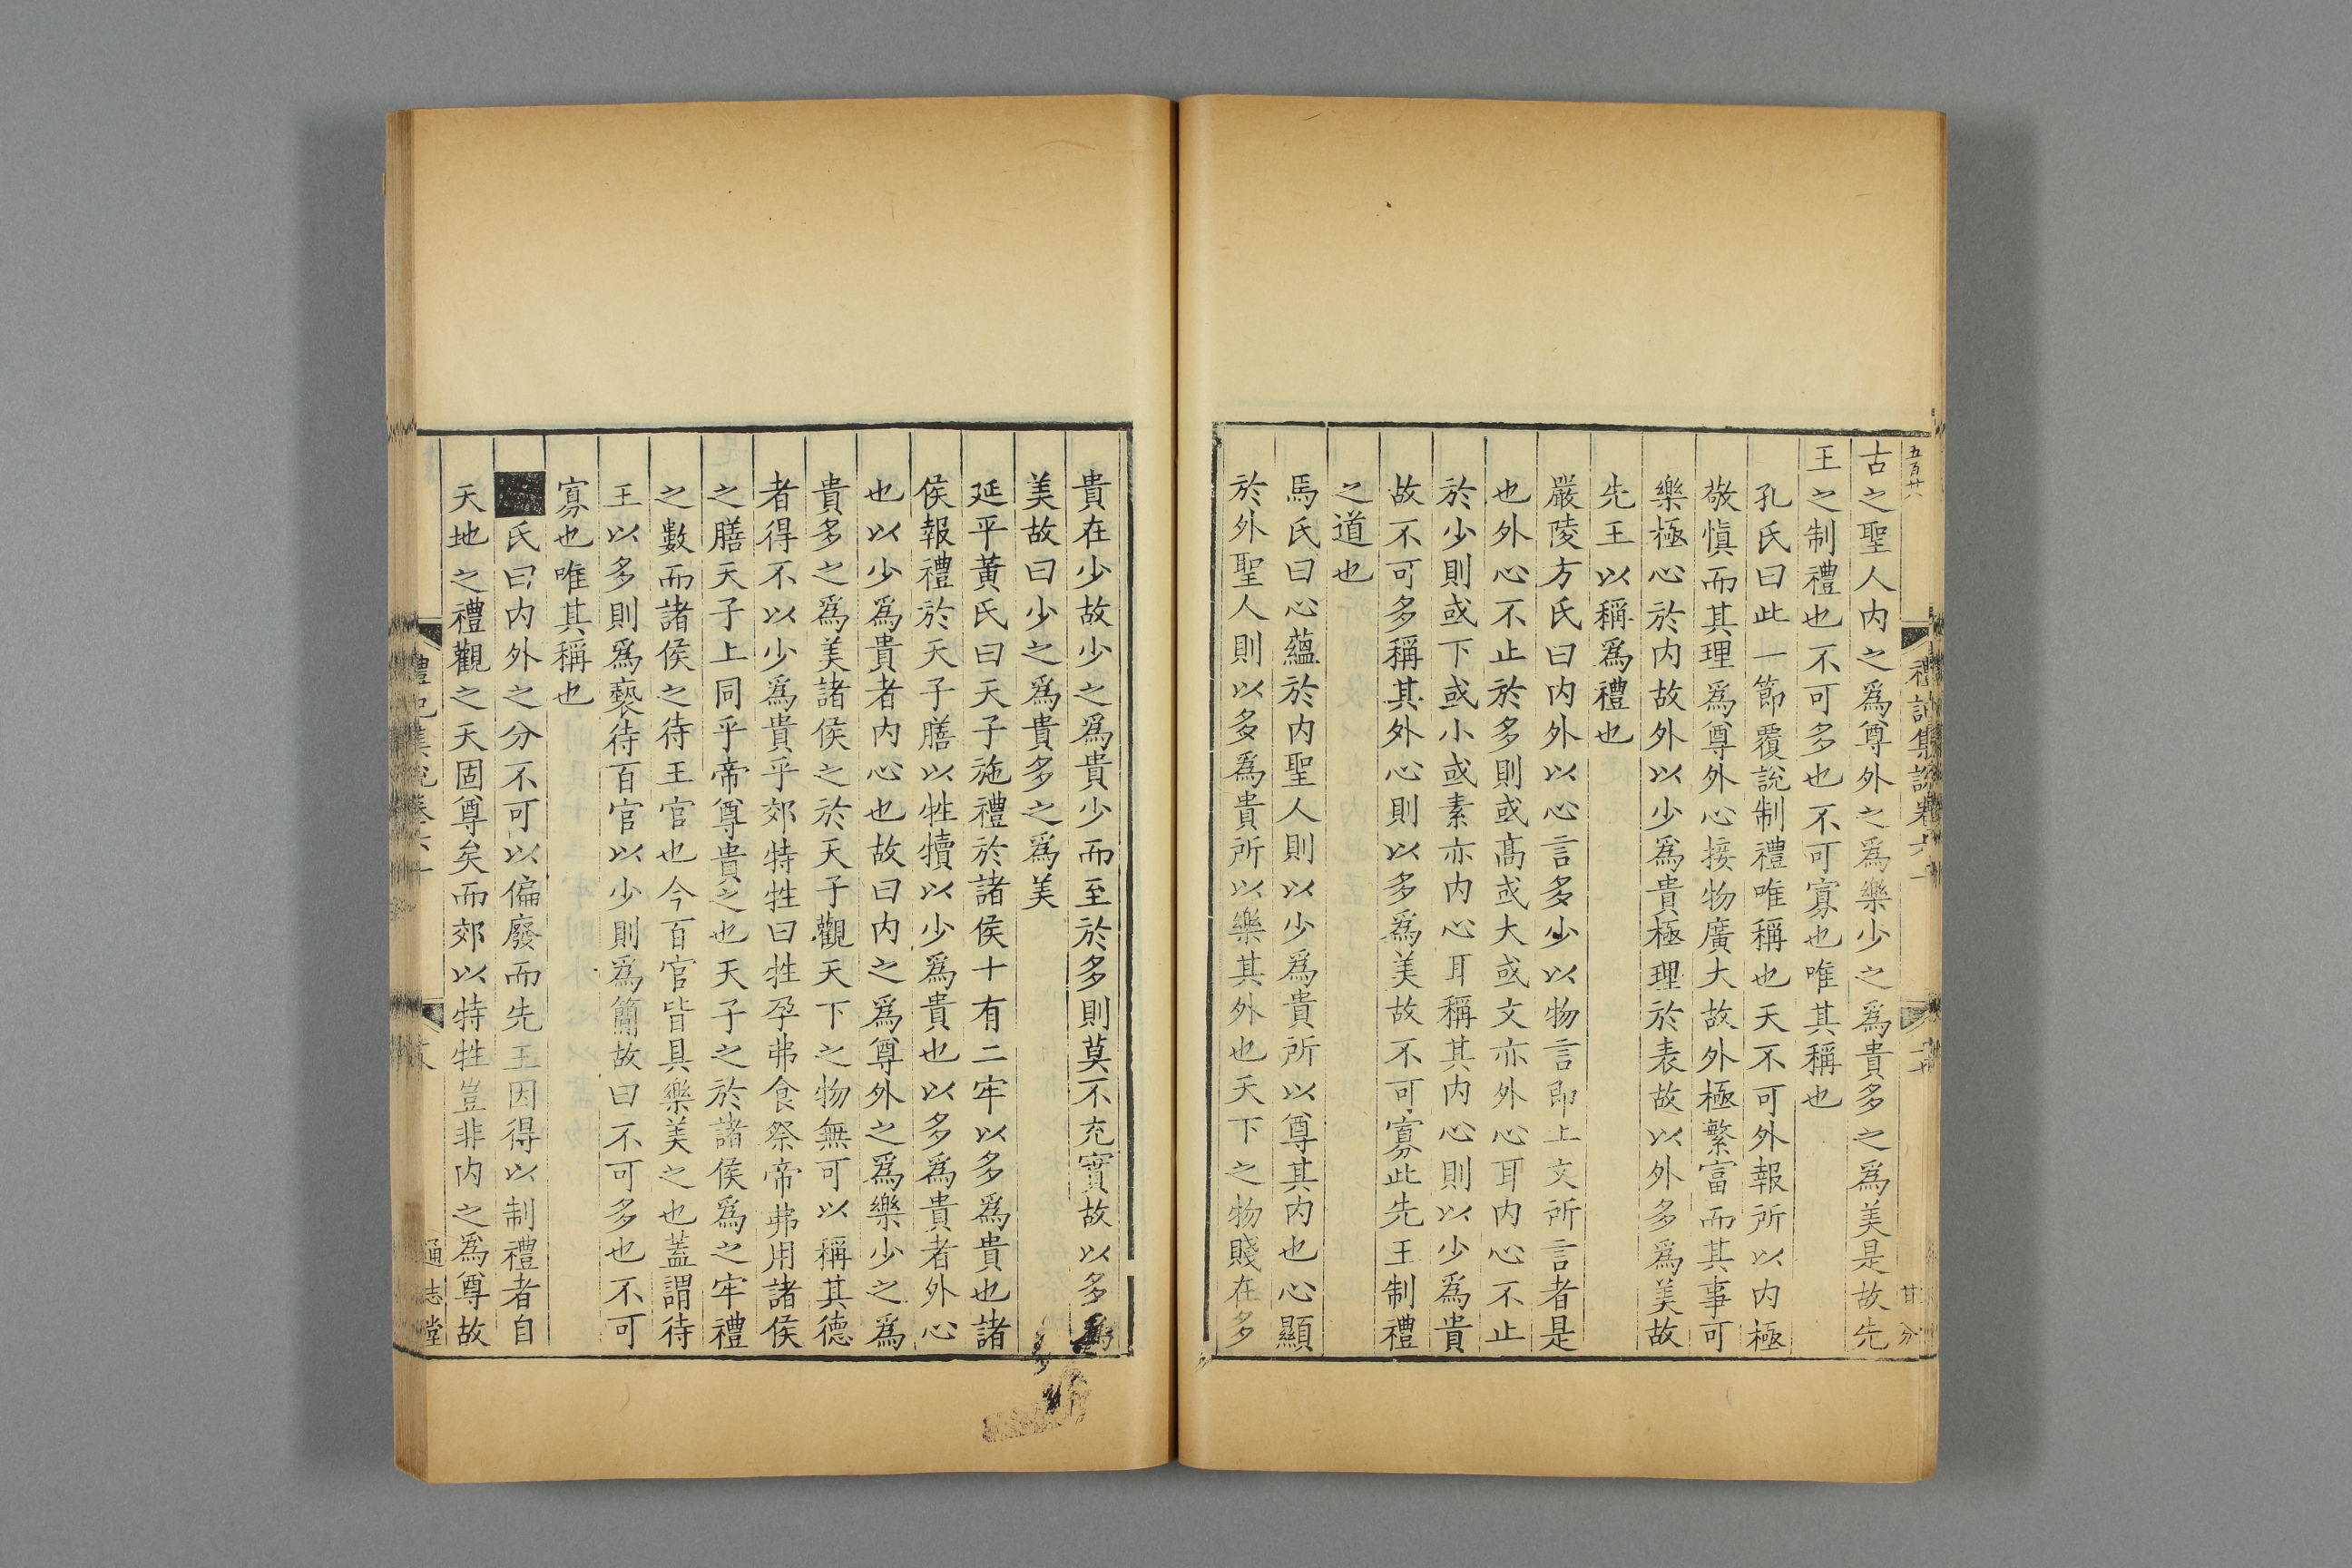 五百廿六
禮記集說卷六十一
古之聖人内之爲尊外之爲樂少之爲貴多之爲美是故先
王之制禮也不可多也不可寡也唯其稱也
孔氏曰此一節覆說制禮唯稱也天不可外報所以内極
敬愼而其理爲尊外心接物廣大故外極繁富而其事可
樂極心於内故外以少爲貴極理於表故以外多爲美故
先王以稱爲禮也
嚴陵方氏曰内外以心言多少以物言即上文所言者是
也外心不止於多則或髙或大或文亦外心耳内心不止
於少則或下或小或素亦内心耳稱其内心則以少爲貴
故不可多稱其外心則以多爲美故不可寡此先王制禮
之道也
馬氏曰心蘊於内聖人則以少爲貴所以尊其内也心顯
於外聖人則以多爲貴所以樂其外也天下之物賤在多
貴在少故少之爲貴少而至於多則莫不充實故以多爲
美故曰少之爲貴多之爲美
延平黃氏曰天子施禮於諸侯十有二牢以多爲貴也諸
侯報禮於天子膳以牲犢以少爲貴也以多爲貴者外心
也以少爲貴者内心也故曰内之爲尊外之爲樂少之爲
貴多之爲美諸侯之於天子觀天下之物無可以稱其德
者得不以少爲貴乎郊特牲曰牲孕弗食祭帝弗用諸侯
之膳天子上同乎帝尊貴之也天子之於諸侯爲之牢禮
之數而諸侯之待王官也今百官皆具樂美之也蓋謂待
王以多則爲褻待百官以少則爲簡故曰不可多也不可
寡也唯其稱也
氏曰内外之分不可以偏廢而先王因得以制禮者自
天地之禮觀之天固尊矣而郊以特牲豈非内之爲尊故
禮記集說卷六十一
通志堂